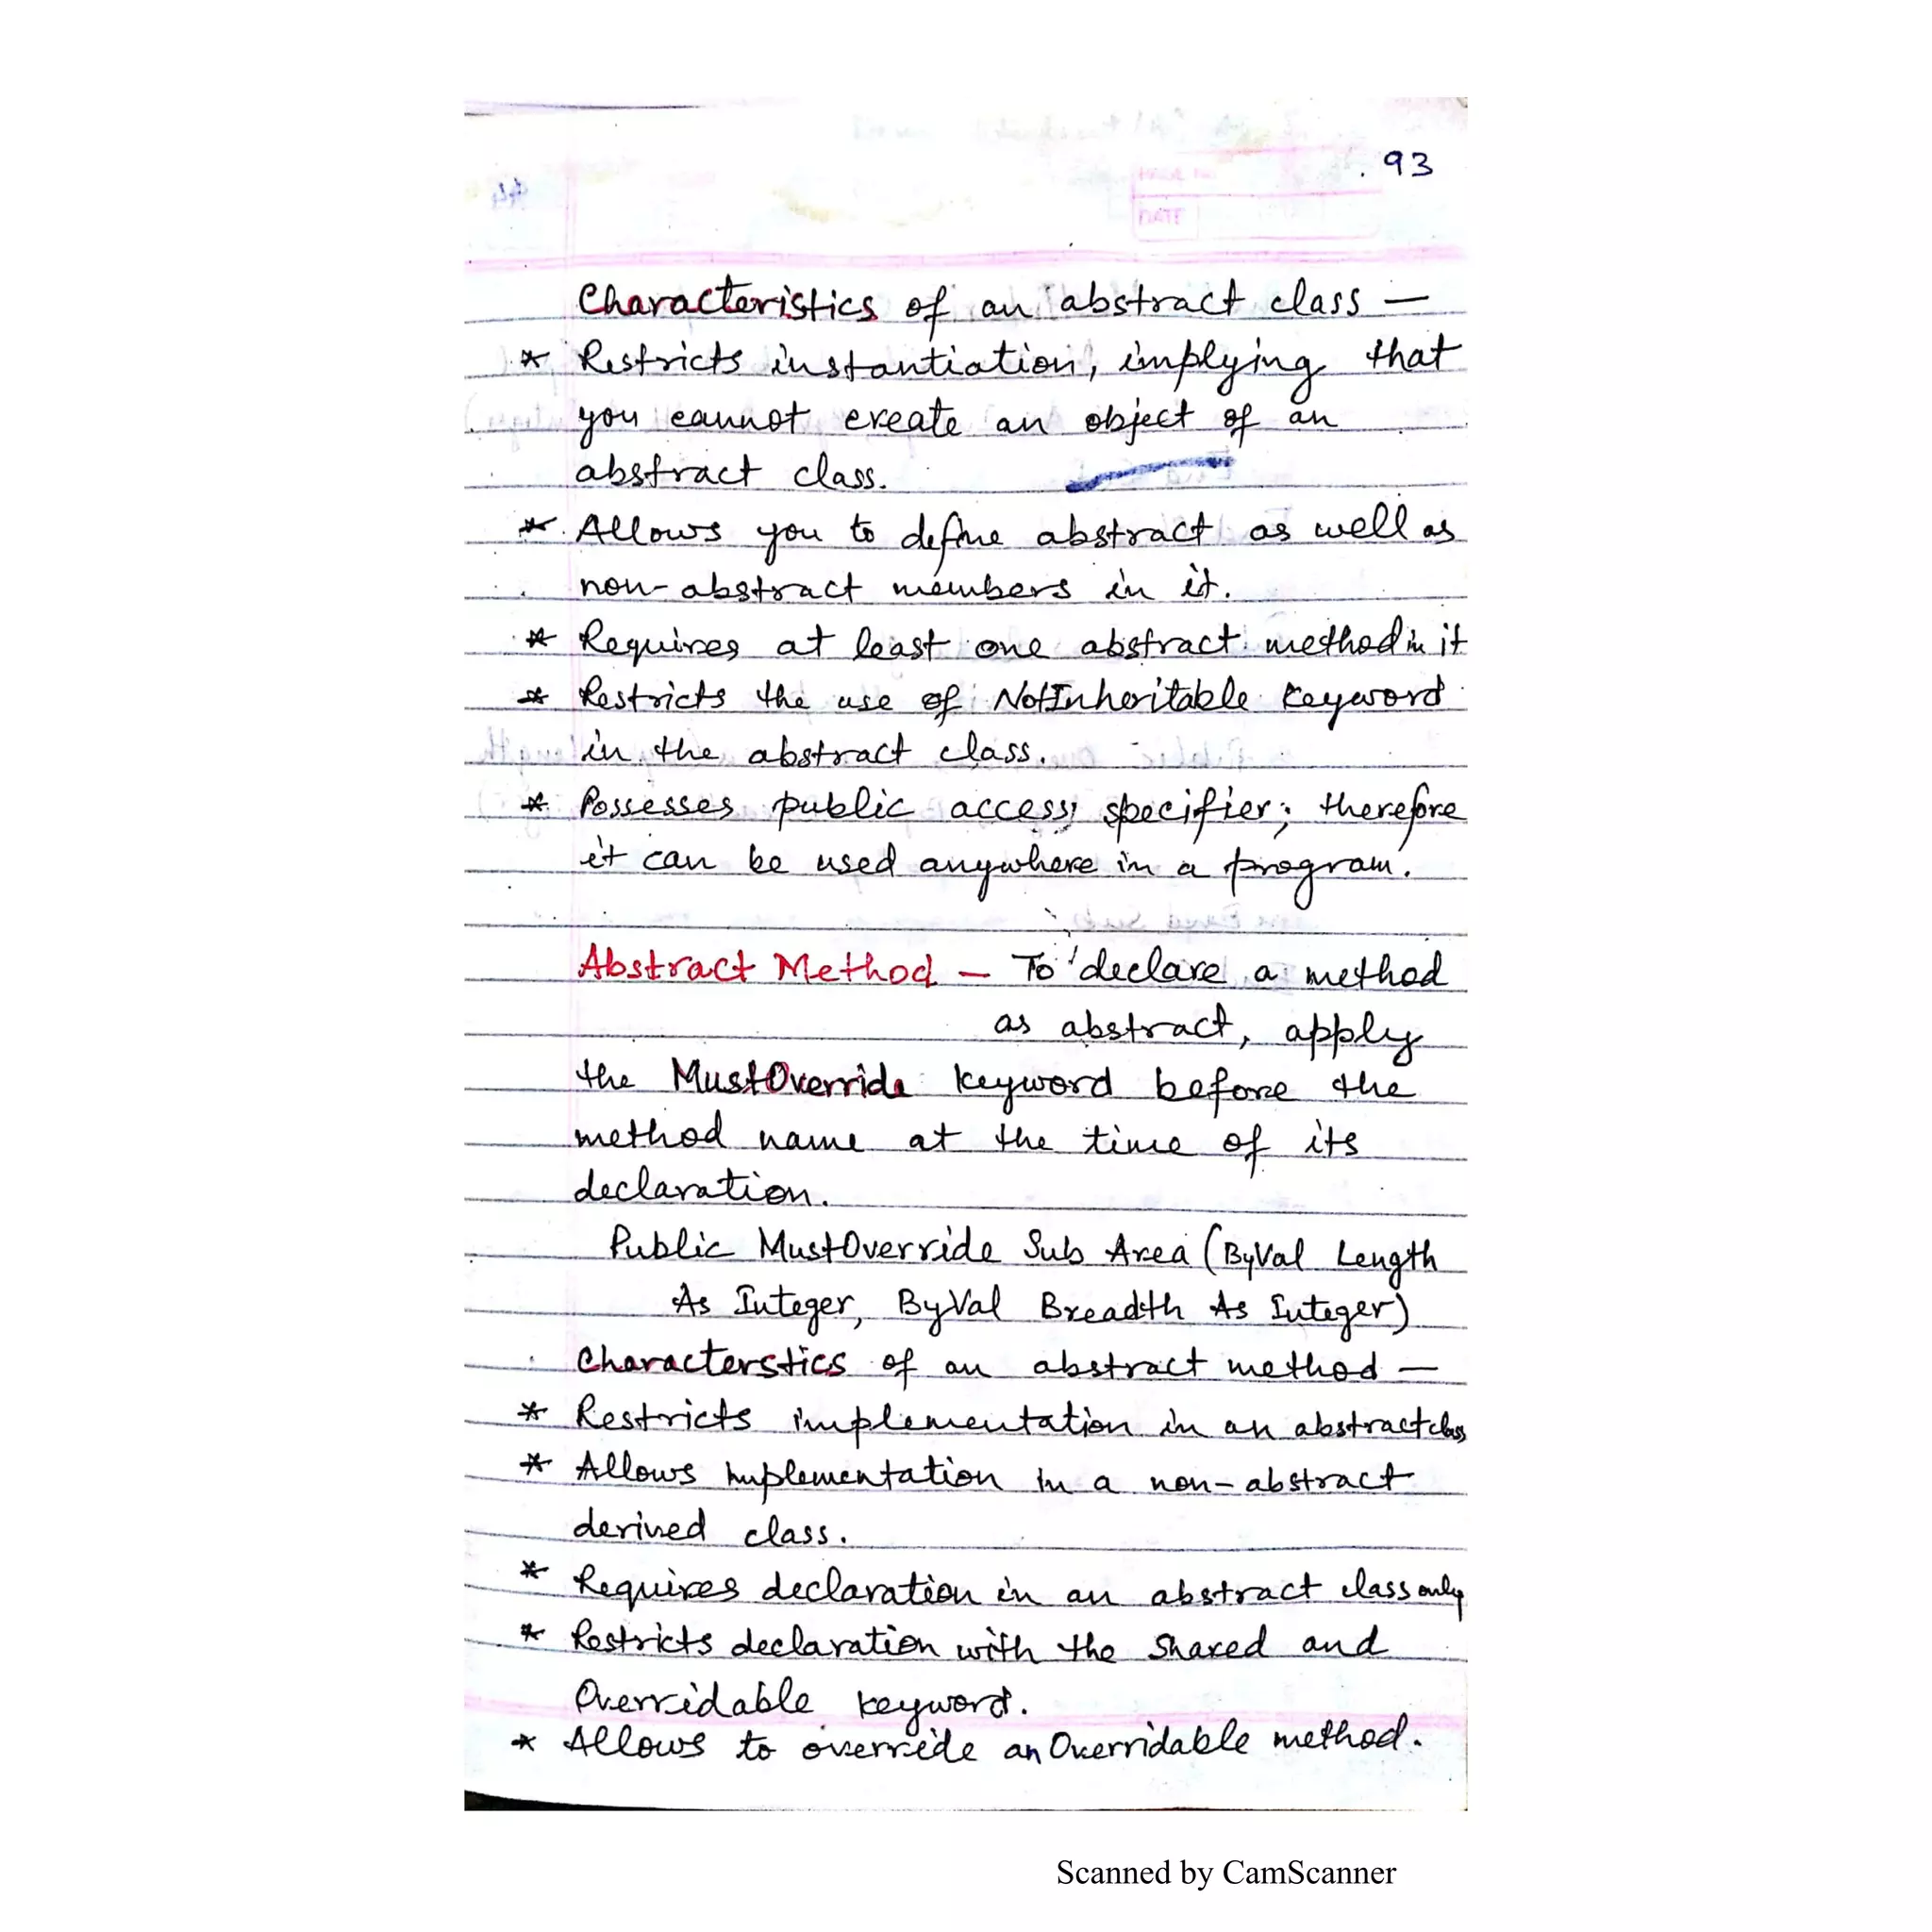 93
Characteristics of an abstract class —
* Restricts instantiation, implying that
you cannot create an object of an
abstract class.
* Allows you to define abstract as well as
non-abstract members in it.
* Requires at least one abstract method in it
* Restricts the use of NotInheritable keyword
in the abstract class.
* Possesses public access specifier; therefore
it can be used anywhere in a program.
Abstract Method — To declare a method
as abstract, apply
the MustOverride keyword before the
method name at the time of its
declaration.
Public MustOverride Sub Area (ByVal Length
As Integer, ByVal Breadth As Integer)
Characterstics of an abstract method —
* Restricts implementation in an abstract class
* Allows implementation in a non-abstract
derived class.
* Requires declaration in an abstract class only
* Restricts declaration with the Shared and
Overridable keyword.
* Allows to override an Overridable method.
Scanned by CamScanner